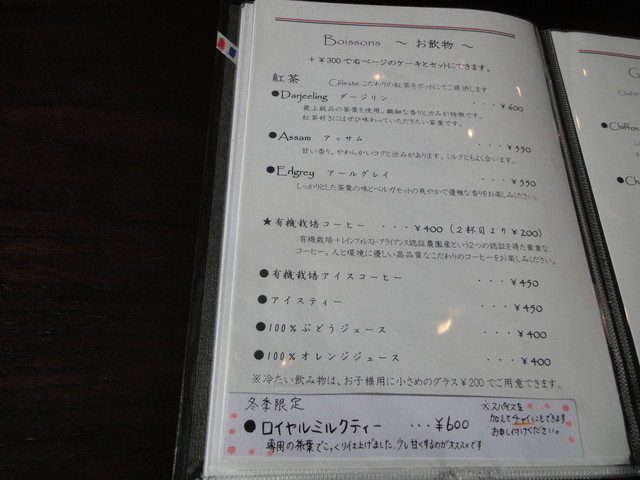 Boissons ～ お飲物 ～
＋¥300で右ページのケーキとセットにできます。
紅茶 Célesteこだわりの紅茶をポットにてご提供します
●Darjeeling ダージリン ・・・¥600
最上級品の茶葉を使用。繊細な香りと渋みが特徴です。
紅茶好きにはぜひ味わっていただきたい茶葉です。
●Assam アッサム ・・・¥550
甘い香り、やわらかいコクと渋みがあります。ミルクともよく合います。
●Erlgrey アールグレイ ・・・¥550
しっかりとした茶葉の味とベルガモットの爽やかで優雅な香りをお楽しみください。
★有機栽培コーヒー ・・・¥400（2杯目より¥200）
有機栽培＋レインフォレスト・アライアンス認証農園産という2つの認証を得た貴重な
コーヒー。人と環境に優しい高品質なこだわりのコーヒーをお楽しみください。
●有機栽培アイスコーヒー ・・・¥450
●アイスティー ・・・¥450
●100%ぶどうジュース ・・・¥400
●100%オレンジジュース ・・・¥400
※冷たい飲み物は、お子様用に小さめのグラス¥200でご用意できます。
冬季限定
●ロイヤルミルクティー ・・・¥600
専用の茶葉でこっくり仕上げました。少し甘くするのがオススメです
※スパイスを
加えてチャイにもできます
お申し付けください。
Chiffon